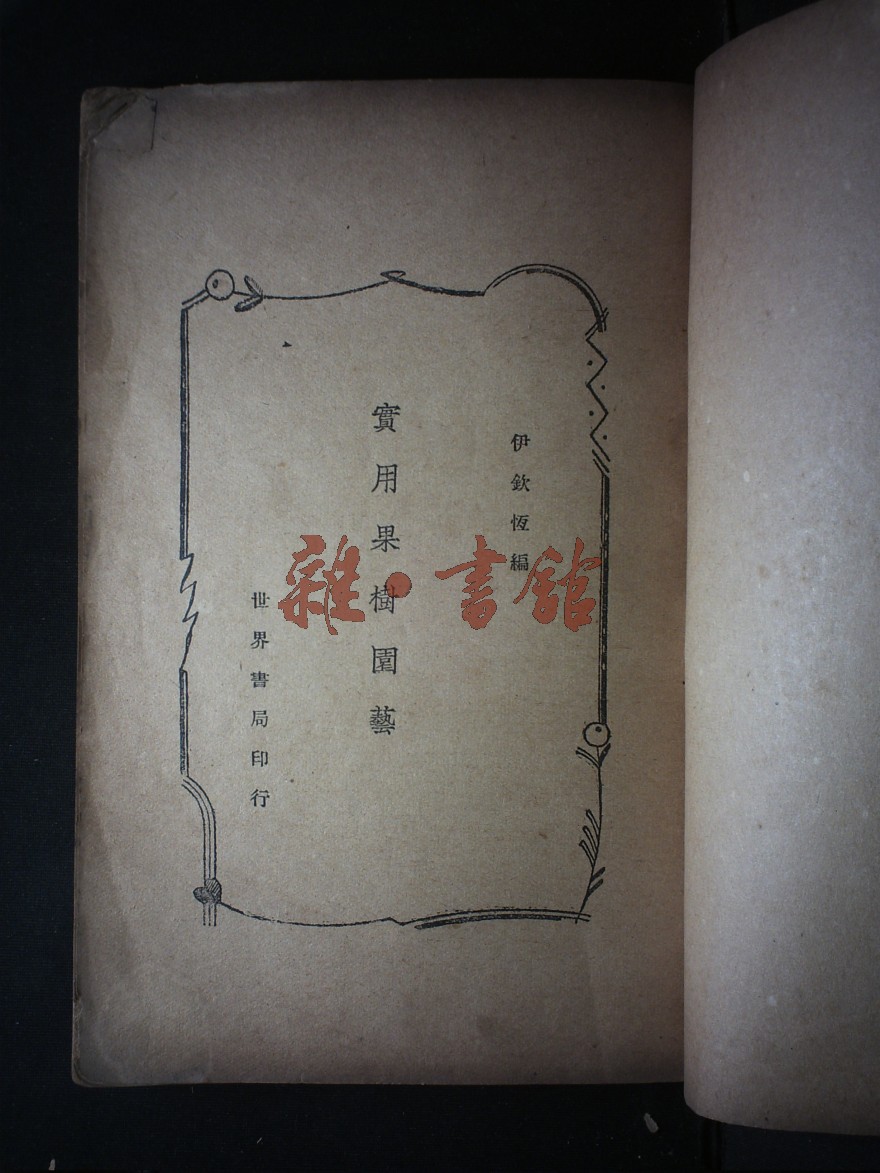 伊欽恆編
實用果樹園藝
世界書局印行
雜·書館